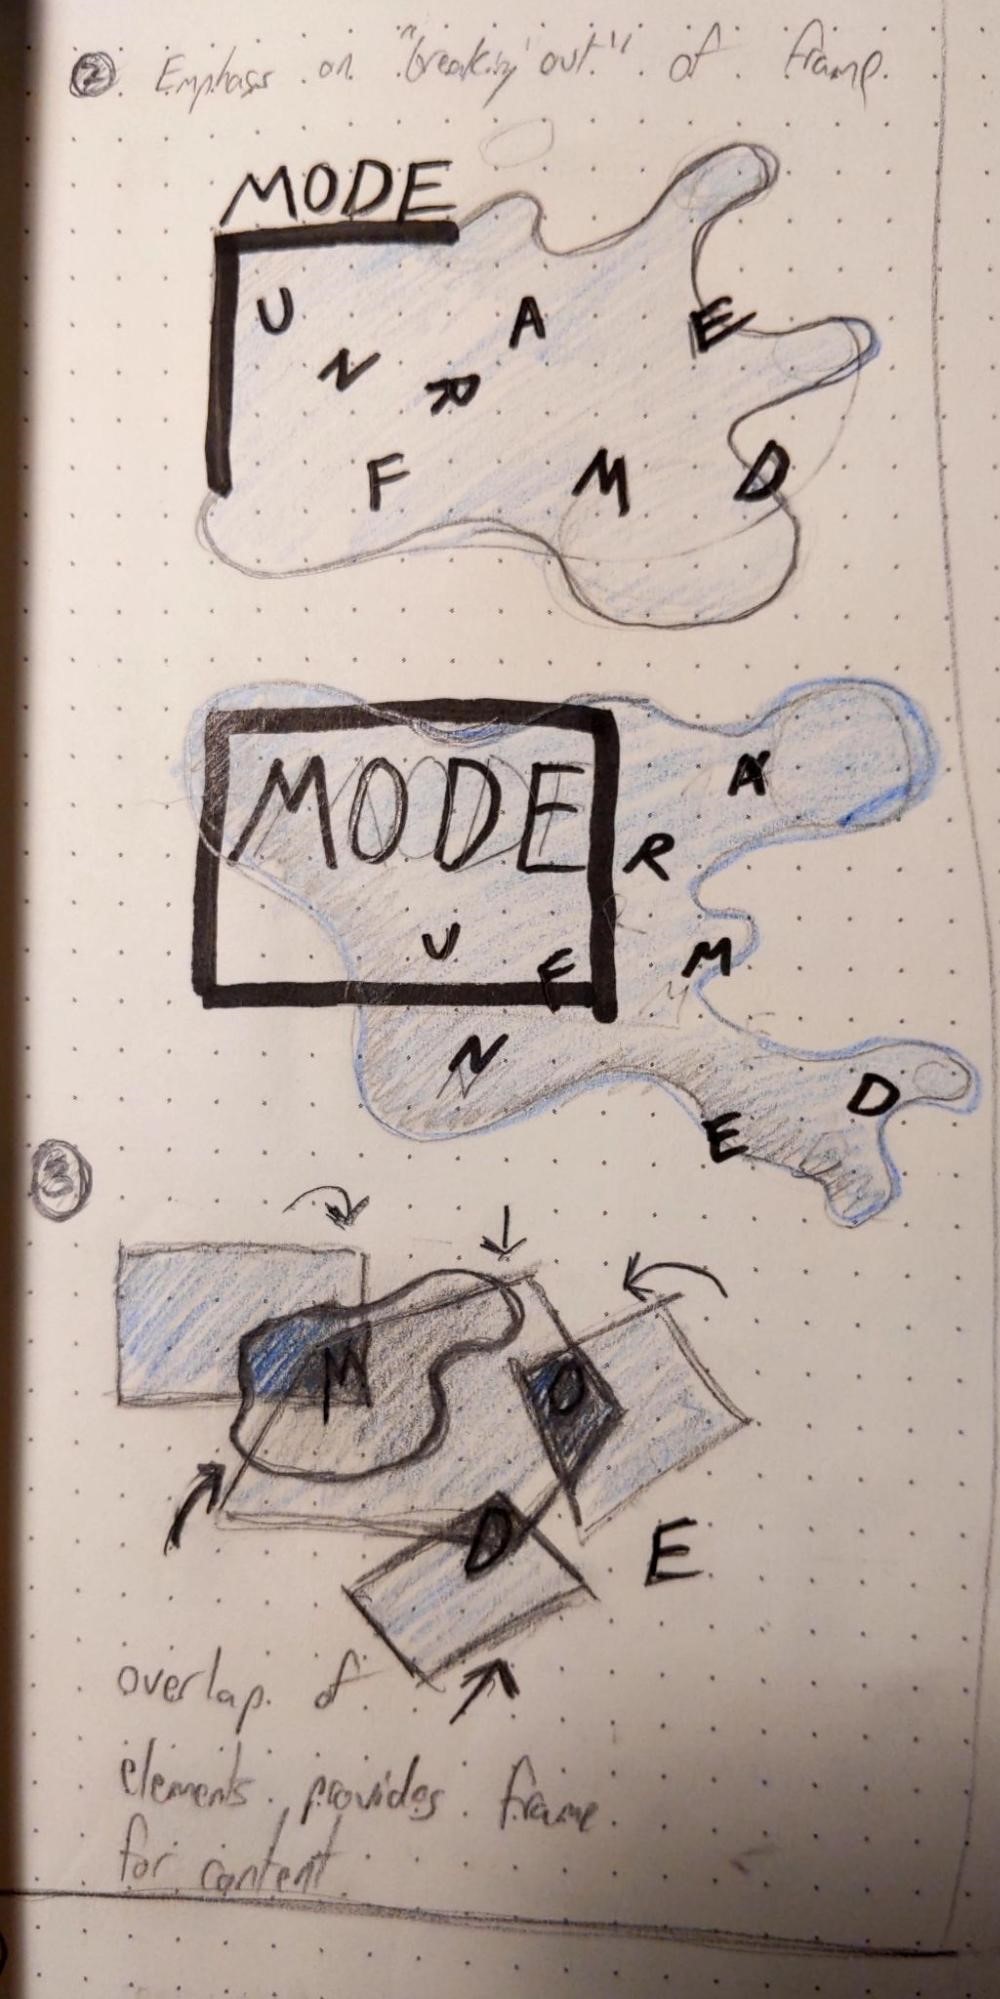 ② Emphasis on "breaking out" of frame
MODE
U
A
E
N
R
F
M
D
MODE
A
R
U
F
M
N
D
E
③
M
O
D
E
overlap of
elements provides frame
for content